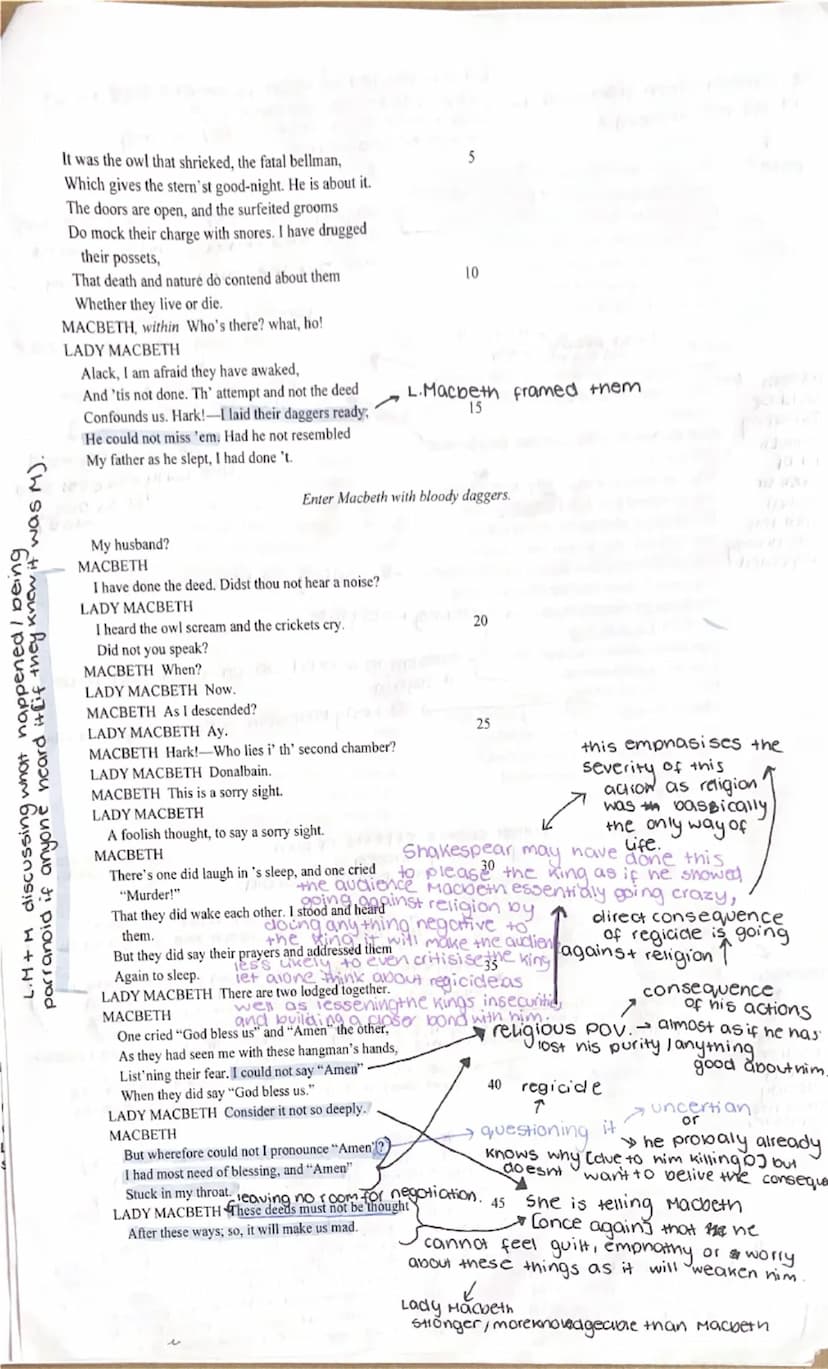 It was the owl that shrieked, the fatal bellman,
5
Which gives the stern'st good-night. He is about it.
The doors are open, and the surfeited grooms
Do mock their charge with snores. I have drugged
their possets,
That death and nature do contend about them
10
Whether they live or die.
MACBETH, within Who's there? what, ho!
LADY MACBETH
Alack, I am afraid they have awaked,
And 'tis not done. Th' attempt and not the deed
Confounds us. Hark!—I laid their daggers ready;
15
He could not miss 'em. Had he not resembled
My father as he slept, I had done 't.
L.Macbeth framed them
Enter Macbeth with bloody daggers.
My husband?
MACBETH
I have done the deed. Didst thou not hear a noise?
LADY MACBETH
I heard the owl scream and the crickets cry.
20
Did not you speak?
MACBETH When?
LADY MACBETH Now.
MACBETH As I descended?
LADY MACBETH Ay.
25
MACBETH Hark!—Who lies i' th' second chamber?
LADY MACBETH Donalbain.
MACBETH This is a sorry sight.
LADY MACBETH
A foolish thought, to say a sorry sight.
MACBETH
There's one did laugh in 's sleep, and one cried
30
"Murder!"
That they did wake each other. I stood and heard
them.
But they did say their prayers and addressed them
35
Again to sleep.
LADY MACBETH There are two lodged together.
MACBETH
One cried "God bless us" and "Amen" the other,
As they had seen me with these hangman's hands,
List'ning their fear. I could not say "Amen"
When they did say "God bless us."
40
LADY MACBETH Consider it not so deeply.
MACBETH
But wherefore could not I pronounce "Amen"?
I had most need of blessing, and "Amen"
Stuck in my throat.
45
LADY MACBETH These deeds must not be thought
After these ways; so, it will make us mad.
L.M + M discussing what happened / being
parranoid if anyone heard it (if they knew it was M).
this emphasises the
severity of this
action as religion
was th basically
the only way of
life.
Shakespear may have done this
to please the King as if he showed
the audience Macbeth essentialy going crazy,
going against religion by
doing anything negative to
the king it will make the audien
less likely to even critisise the King
let alone think about regicide as
well as lessening the kings insecuritie
and building a closer bond with him.
direct consequence
of regicide is going
against religion
consequence
of his actions
religious pov. → almost as if he has
lost his purity / anything
good about him.
regicide
questioning it
uncertian
or
he probaly already
knows why [due to him killing D] but
doesnt want to belive the conseque
leaving no room for negotiation.
She is telling Macbeth
[once again] that he
cannot feel guilt, empnathy or worry
about these things as it will weaken him.
Lady Macbeth
stronger, more knowledgeable than Macbeth